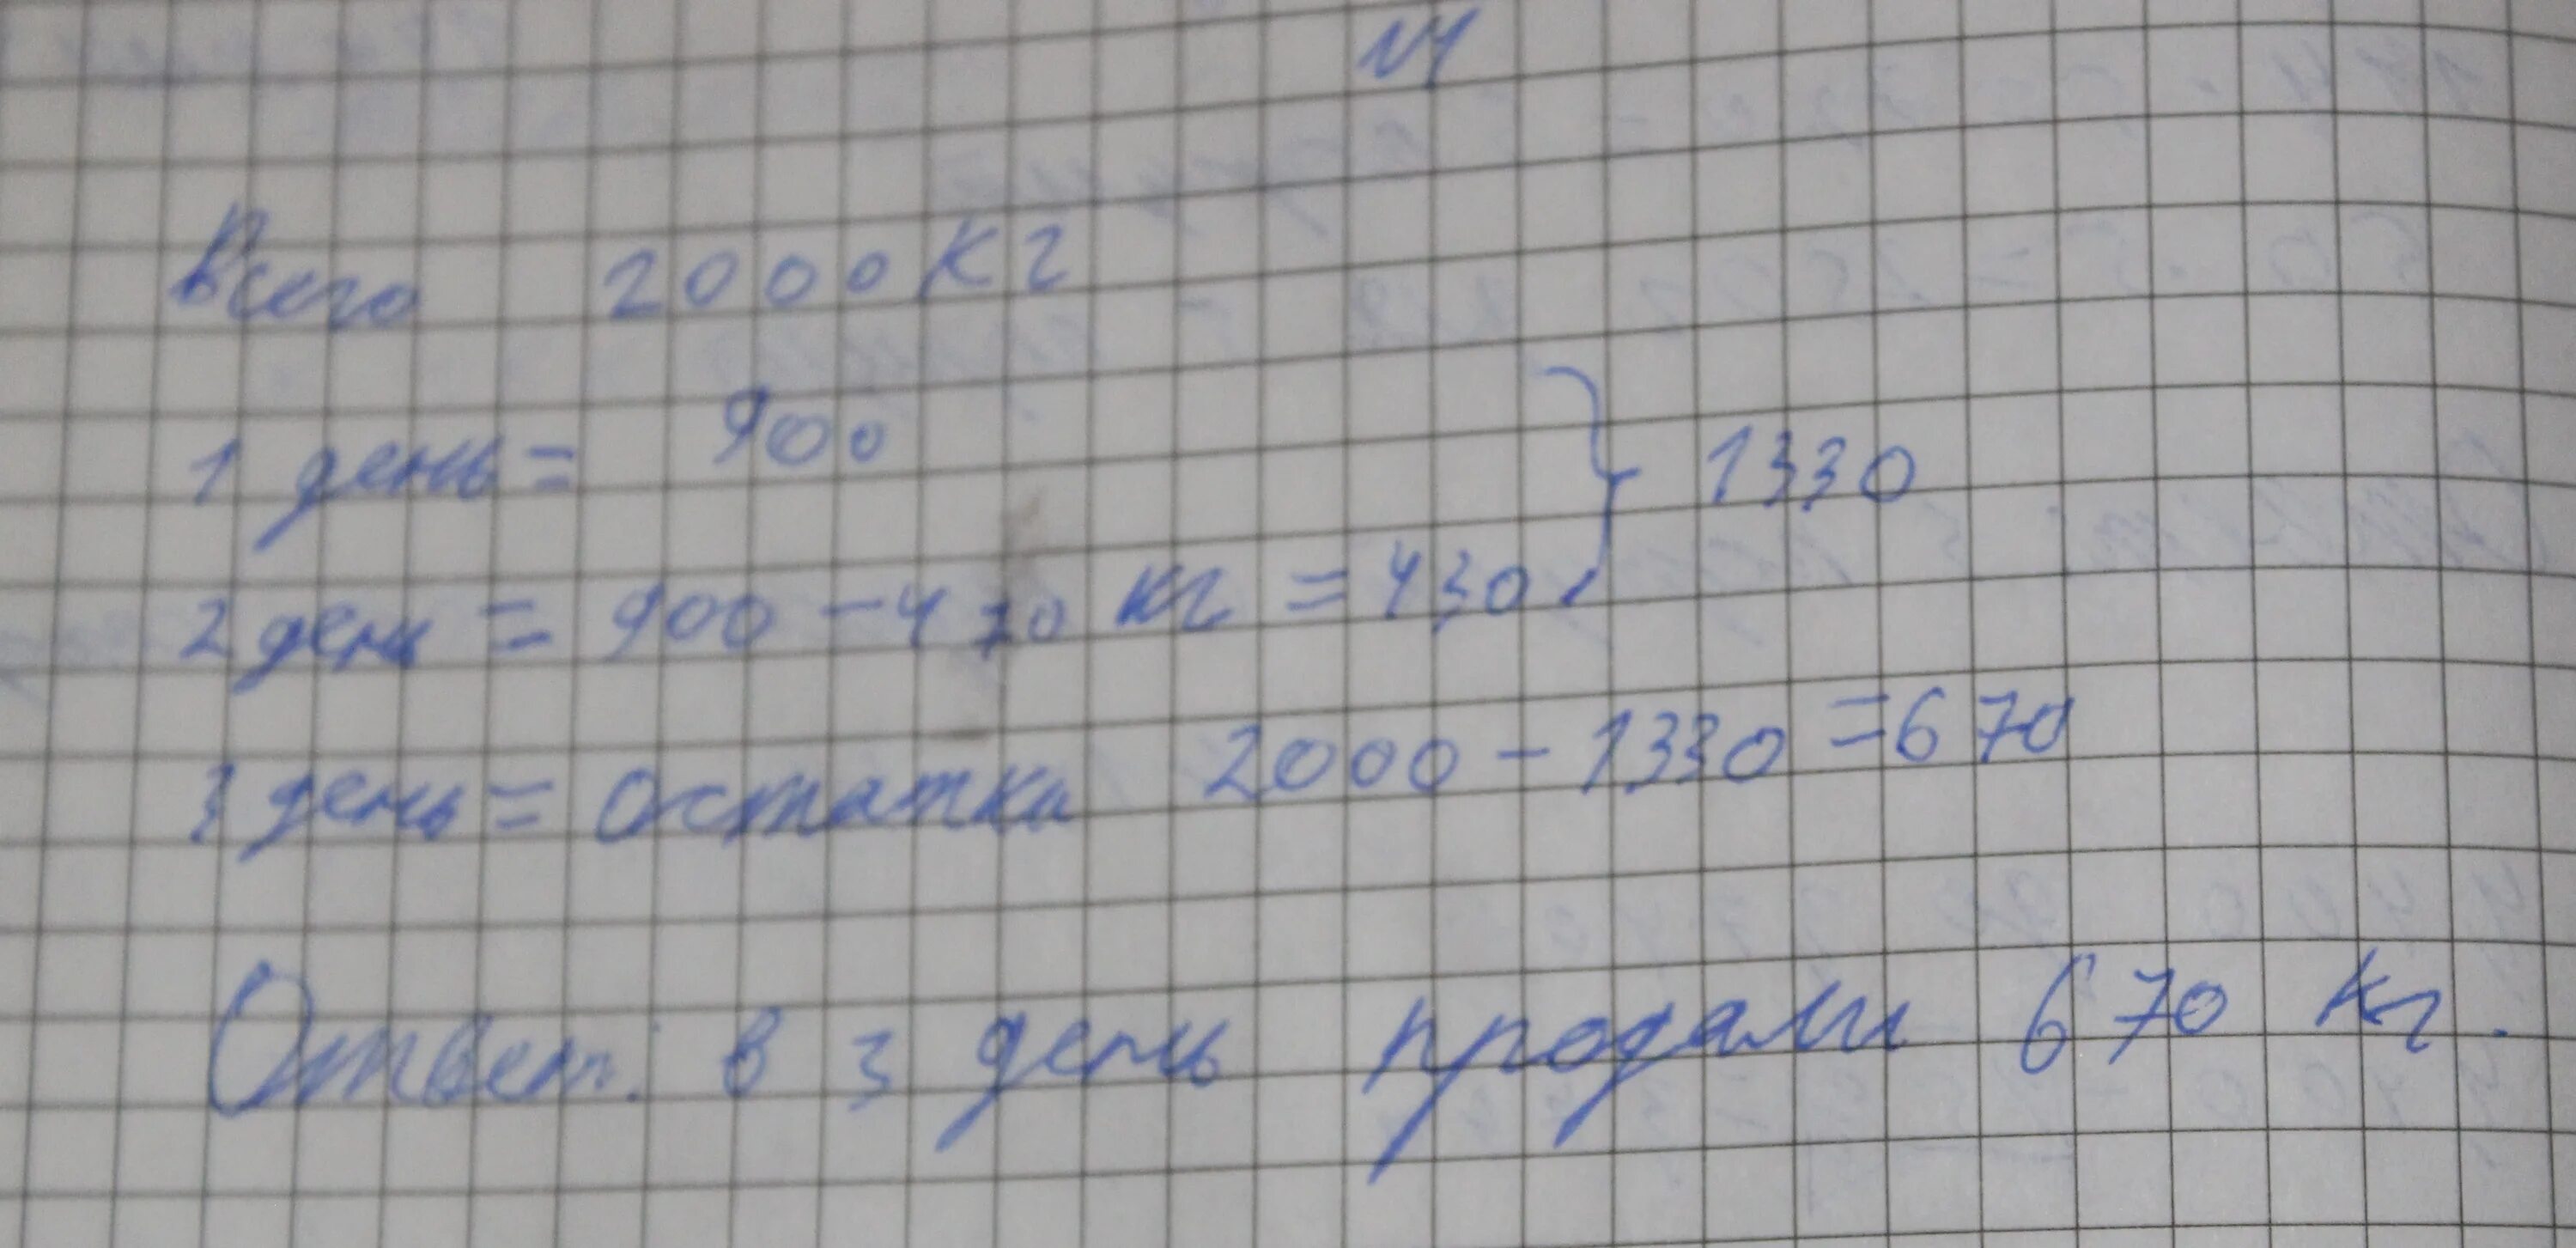 №4
Всего 2000 кг
1 день = 900
1330
2 день = 900 - 470 кг = 430
3 день = остатки 2000 - 1330 = 670
Ответ: в 3 день продали 670 кг.